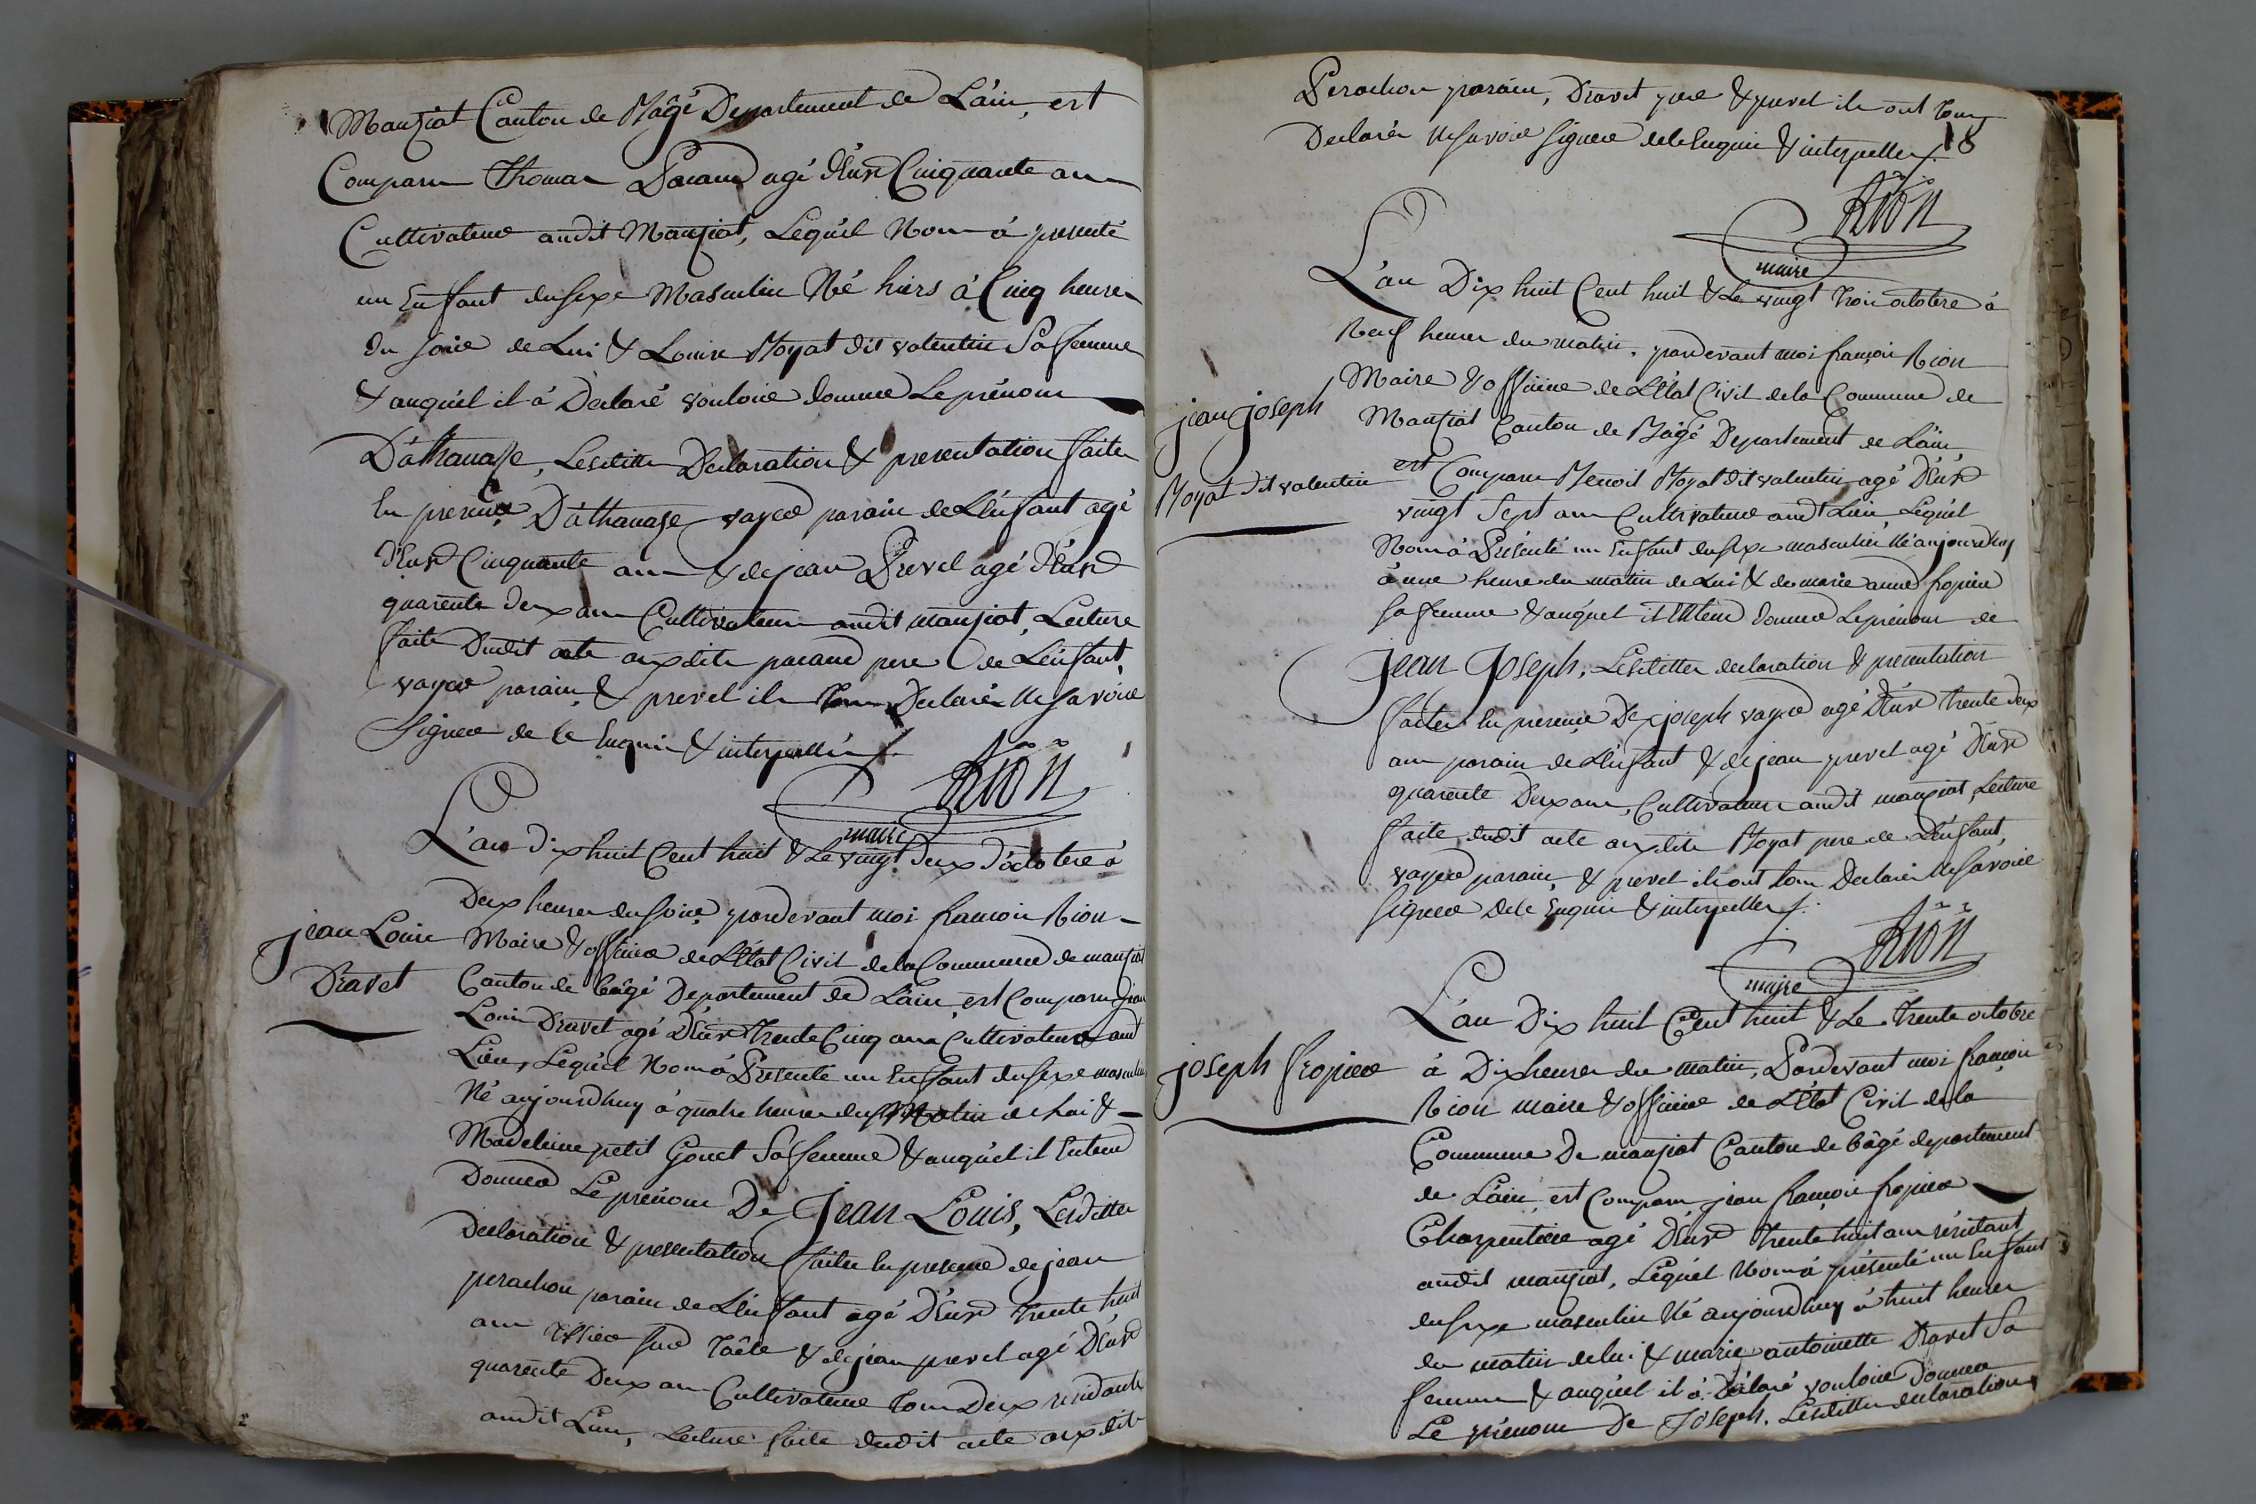 Manziat Canton de Bâgé Departement de L'ain, est
Comparu Thomas Pacaud agé d'Environ Cinquante ans
Cultivateur audit Manziat, Lequel Nous à presenté
un Enfant du sexe Masculin Né hiers à Cinq heures
du soire de Lui & Louise Boyat dit valentin Sa femme
& auquel il à Declaré vouloire donner Le prénom
D'athanase, Lesdittes Declaration & presentation faites
En presence D'athanase vayer parain de L'enfant agé
d'Environ Cinquante ans & de jean Prevel agé d'Environ
quarente deux ans Cultivateurs audit manziat, Lecture
faite Dudit acte auxdits pacaud pere de L'enfant,
vayer parain, & prevel ils Declarés Ne savoire
Signer de ce Enquis & interpellés /.
Rion
maire
L'an dix huit Cent huit & Le vingt deux d'octobre à
Deux heures du soire pardevant moi francois Rion
jean Louis
Maire & officier de L'état Civil de la Commune de manziat
Dravet
Canton de bâgé Departement de L'ain, est Comparu jean
Louis Dravet agé d'Environ trente Cinq ans Cultivateur audt
Lieu, Lequel Nous à Presenté un Enfant du sexe masculin
Né aujourdhuy à quatre heures du Matin de Lui &
Madeleine petit Gonet Sa femme & auquel il Entend
Donner Le prénom De Jean Louis, Lesdittes
declaration & presentation faites En presence de jean
perachon parain de L'enfant agé d'Environ trente huit
ans tissier sur toile & de jean prevel agé d'Environ
quarente Deux ans Cultivateur tous Deux residants
audit Lieu, Lecture faite dudit acte auxdits
Perachon parain, Dravet pere & prevel ils ont tous
Declarés Ne savoire signer de ce Enquis & interpellés /.
18
Rion
maire
L'an Dix huit Cent huit & Le vingt trois octobre à
Neuf heures du matin, pardevant moi françois Rion
Maire & officier de L'état Civil de la Commune de
jean joseph
Manziat Canton de Bâgé Departement de L'ain
Boyat dit valentin
est Comparu Benoit Boyat dit valentin agé d'Environ
vingt Sept ans Cultivateur audt Lieu, Lequel
Nous à Présenté un Enfant du sexe masculin Né aujourdhuy
à une heure du matin de Lui & de marie anne fropier
sa femme & auquel il Entend donner Le prénom de
Jean Joseph, Lesdittes declaration & presentation
faites En presence De joseph vayer agé d'Environ trente deux
ans parain de L'enfant & de jean prevel agé d'Environ
quarente Deux ans, Cultivateurs audit manziat, Lecture
faite dudit acte auxdits Boyat pere de L'enfant,
vayer parain, & prevel ils ont tous Declarés Ne savoire
signer De ce Enquis & interpellés /.
Rion
maire
L'an Dix huit Cent huit & Le trente octobre
joseph fropier
à Dix heures du matin, Pardevant moi françois
Rion maire & officier de L'état Civil de la
Commune De manziat Canton de bâgé departement
de L'ain, est Comparu jean françois fropier
Charpentier agé d'Environ trente huit ans résidant
audit manziat, Lequel Nous à présenté un Enfant
du sexe masculin Né aujourdhuy à huit heures
du matin de lui & marie antoinette Dravet Sa
femme & auquel il à déclaré vouloire donner
Le prénom De Joseph. Lesdittes declaration